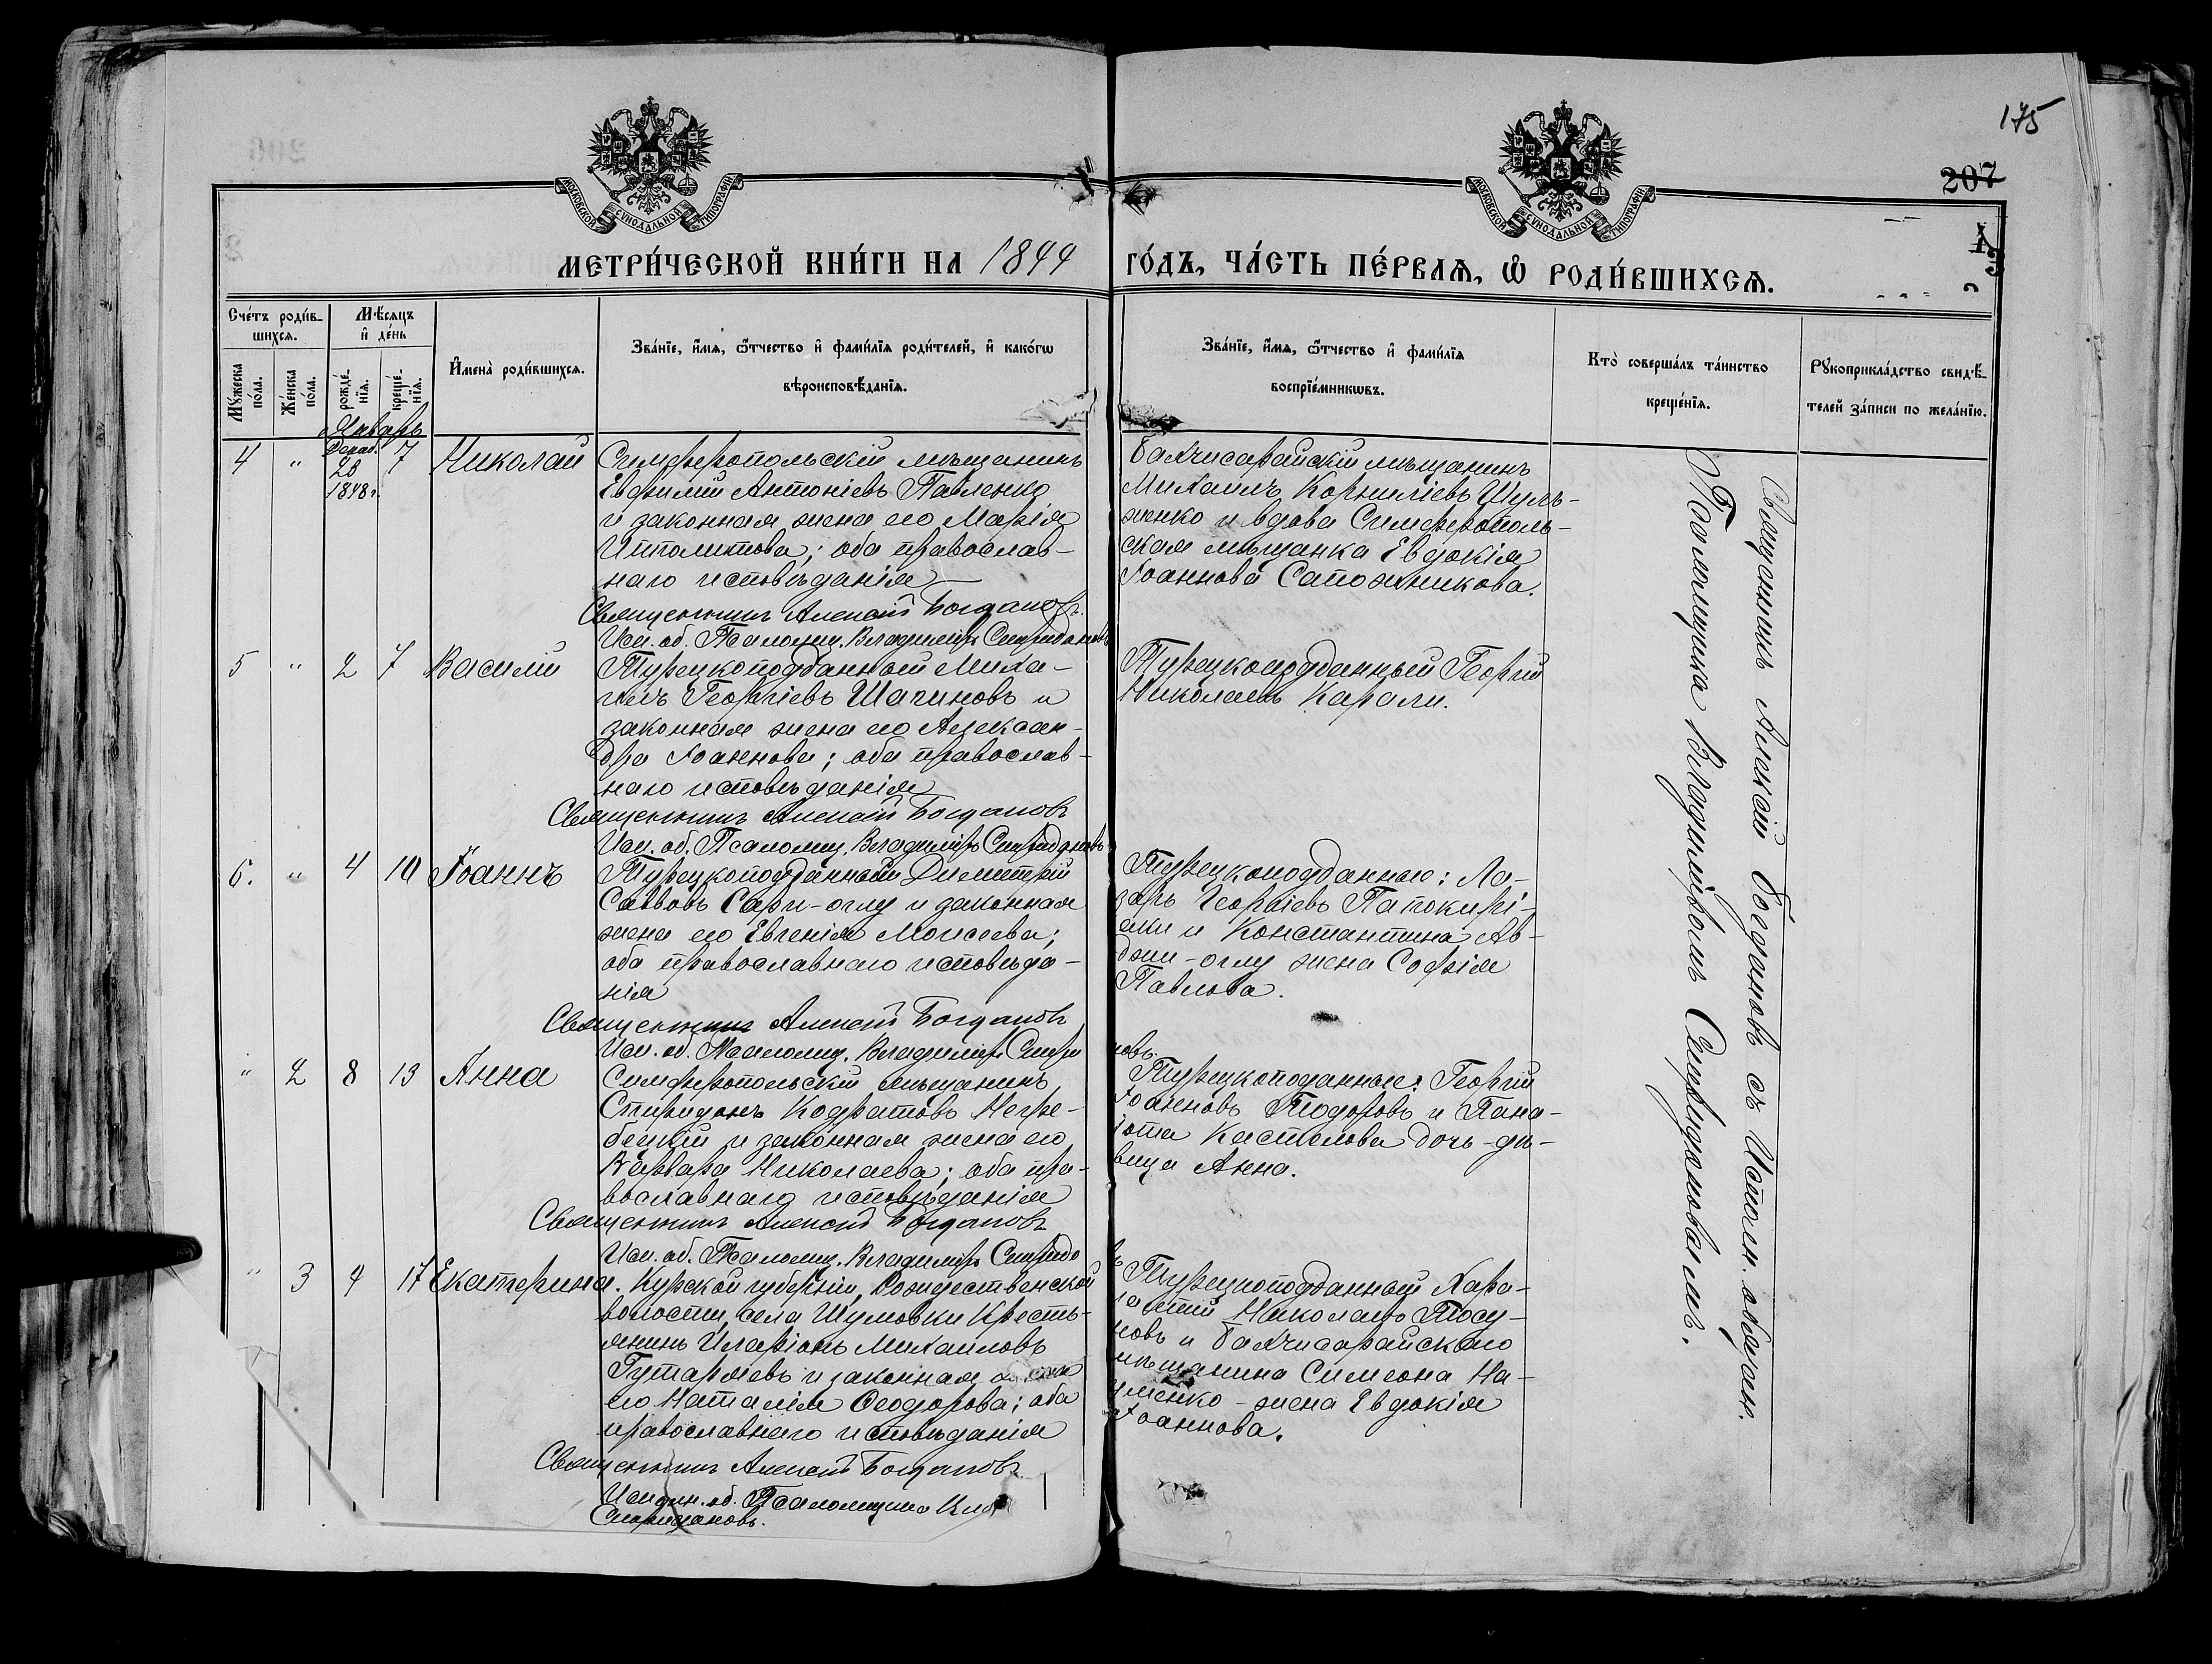 175
207
МОСКОВСКОЙ СѴНОДАЛЬНОЙ ТИПОГРАФІИ
МОСКОВСКОЙ СѴНОДАЛЬНОЙ ТИПОГРАФІИ
МЕТРИ́ЧЕСКОЙ КНИ́ГИ НА 1899
ГО́ДЪ, ЧА́СТЬ ПЕ́РВАѦ, Ѡ҆ РОДИ́ВШИХСѦ.
Сче́тъ роди́в-
шихсѧ.
Мѣ́сѧцъ
и҆ де́нь
Мꙋ́жеска
по́ла.
Же́нска
по́ла.
рожде́-
нїѧ.
креще́-
нїѧ.
И҆мена̀ роди́вшихсѧ.
Зва́нїе, и҆́мѧ, ѻ҆́тчество и҆ фами́лїѧ роди́телей, и҆ како́гѡ
вѣроисповѣ́данїѧ.
Зва́нїе, и҆́мѧ, ѻ҆́тчество и҆ фами́лїѧ
воспрїе́мникѡвъ.
Кто̀ соверша́лъ та́инство
креще́нїѧ.
Рꙋкоприкла́дство свидѣ́-
телей за́писи по жела́нїю.
Январь
4 " Декаб. 28 1898 г. 7 Николай
Симферопольскій мѣщанинъ
Евфимій Антоніевъ Павленко
и законная жена его Марія
Ипполитова; оба православ-
наго исповѣданія
Священникъ Алексій Богдановъ.
Исп. об. Псаломщ. Владиміръ Спиридоновъ
Бахчисарайскій мѣщанинъ
Михаилъ Корниліевъ Шуль-
женко и вдова Симферополь-
ская мѣщанка Евдокія
Іоаннова Сапожникова.
5 " 2 7 Василій
Турецкоподданный Миха-
илъ Георгіевъ Шагиновъ и
законная жена его Алексан-
дра Іоаннова; оба православ-
наго исповѣданія
Священникъ Алексій Богдановъ
Исп. об. Псаломщ. Владиміръ Спиридоновъ
Турецкоподданный Георгій
Николаевъ Карали.
6. " 4 10 Іоаннъ
Турецкоподданный Димитрій
Саввовъ Сари-оглу и законная
жена его Евгенія Моисеева;
оба православнаго исповѣда-
нія
Священникъ Алексій Богдановъ
Исп. об. Псаломщ. Владиміръ Спиридо
новъ.
Турецкоподданные: Ла-
зарь Георгіевъ Папокирі-
аки и Константина Ав-
джи-оглу жена Софія
Павлова.
" 2 8 13 Анна
Симферопольскій мѣщанинъ
Спиридонъ Кодратовъ Негре-
бецкій и законная жена его
Варвара Николаева; оба пра-
вославнаго исповѣданія
Священникъ Алексій Богдановъ
Исп. об. Псаломщ. Владиміръ Спиридо
Турецкоподданные: Георгій
Іоанновъ Тодоровъ и Пана-
іота Кастелова дочь-дѣ-
вица Анна.
" 3 9 17 Екатерина.
Курской губерніи, Рождественской
волости, села Шумовки кресть-
янинъ Иларіонъ Михаиловъ
Гутаревъ и законная жена
его Наталія Ѳеодорова; оба
православнаго исповѣданія
Священникъ Алексій Богдановъ
Исправ. об. Псаломщика Влад.
Спиридоновъ.
Турецкоподданный Хара-
лампій Николаевъ Тосу-
новъ и Бахчисарайскаго
мѣщанина Симеона На-
уменко - жена Евдокія
Іоаннова.
Священникъ Алексій Богдановъ съ Исполн. обязан.
Псаломщика Владиміромъ Спиридоновымъ.